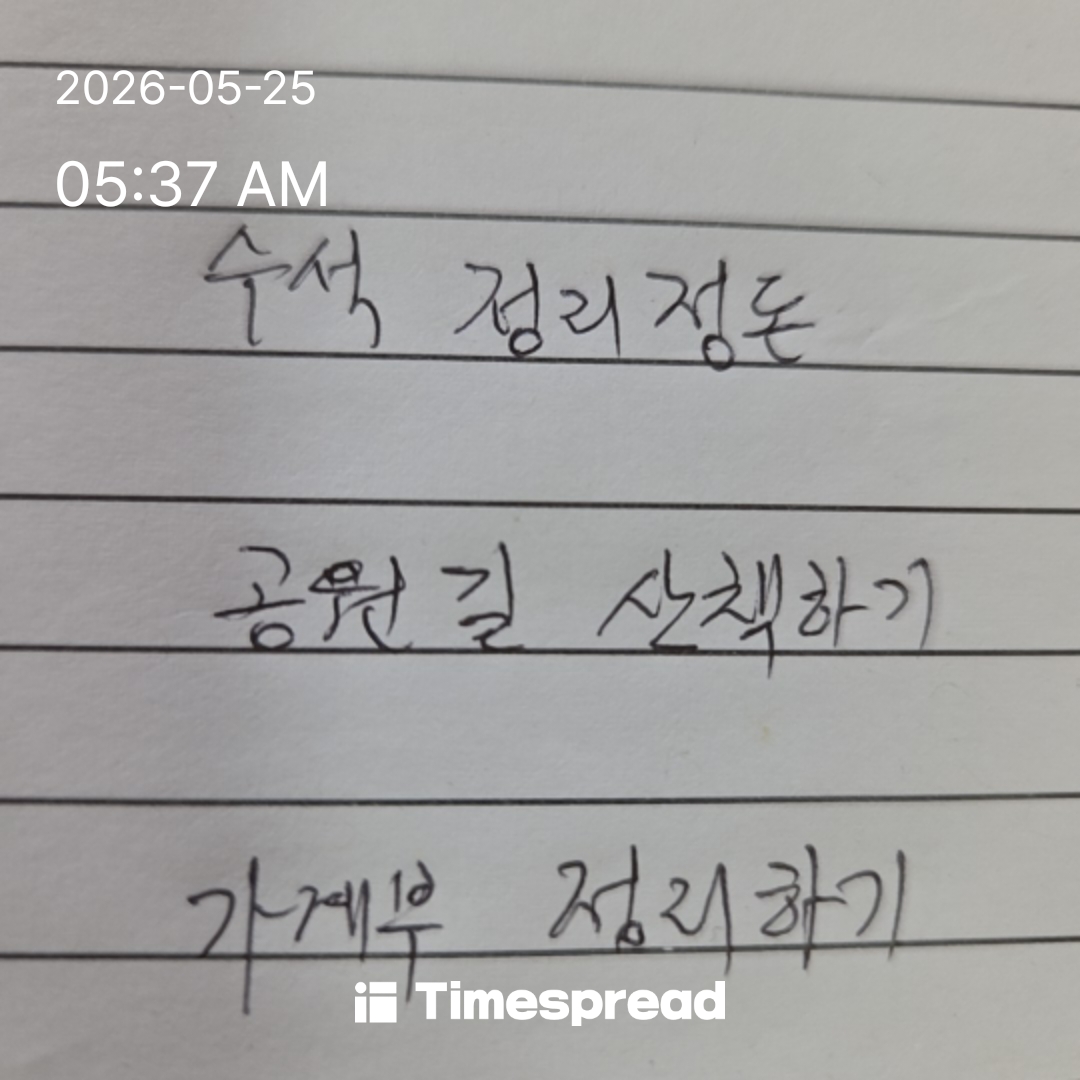 2026-05-25
05:37 AM
수석 정리정돈
공원길 산책하기
가계부 정리하기
Timespread